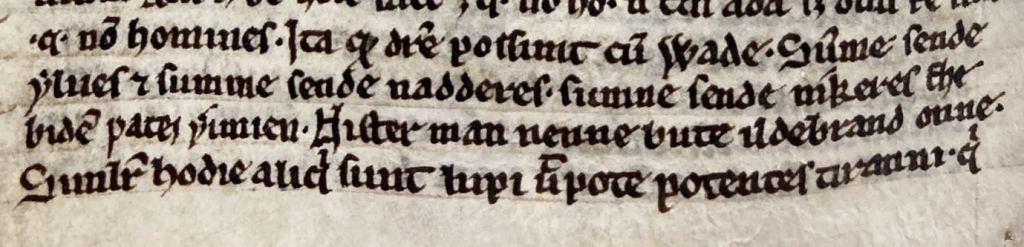 ·q· nō homines· Ita qđ dr̄e possunt cū Wade· Sūme sende
ẏlues ⁊ summe sende nadderes· sumne sende nikeres the
bidē pateꝫ ƿunien· Nister man nenne bute ildebrand onne·
Similr̄ hodie aliqͥ sunt lupi ut̄pote potentes tiranni· qͥ